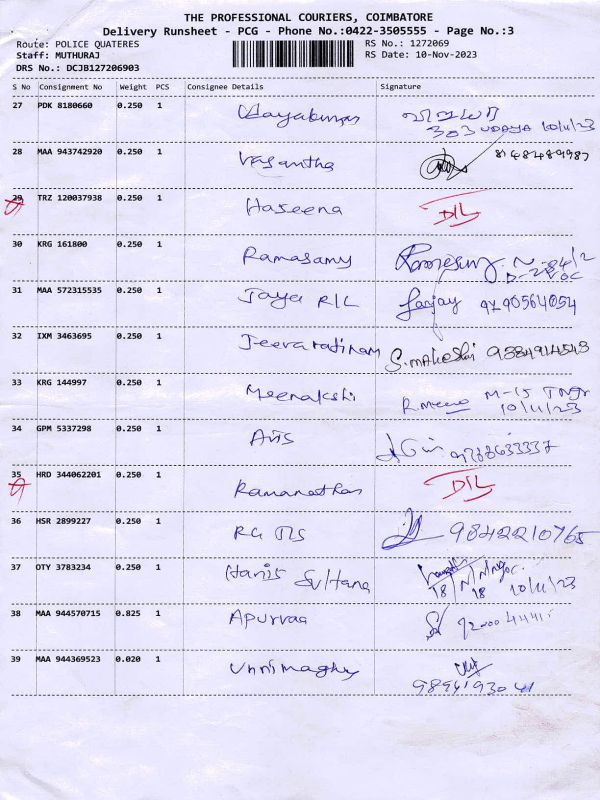 THE PROFESSIONAL COURIERS, COIMBATORE
Delivery Runsheet - PCG - Phone No.:0422-3505555 - Page No.:3
Route: POLICE QUATERES RS No.: 1272069
Staff: MUTHURAJ RS Date: 10-Nov-2023
DRS No.: DCJB127206903
S No Consignment No Weight PCS Consignee Details Signature
27 PDK 8180660 0.250 1 Udayakumar
303 UDAYA 10/11/23
28 MAA 943742920 0.250 1 Vasantha 8148489987
29 TRZ 120037938 0.250 1 Haseena D/L
30 KRG 161800 0.250 1 Ramasamy
31 MAA 572315535 0.250 1 Jaya R/L Sanjay
32 IXM 3463695 0.250 1 Jeevarathinam S.Maheshi 9384914543
33 KRG 144997 0.250 1 Meenakshi R.Meena M-15
10/11/23
34 GPM 5337298 0.250 1
35 HRD 344062201 0.250 1 Ramanathan D/L
36 HSR 2899227 0.250 1 9842210765
37 OTY 3783234 0.250 1 Haris Sultana
18 10/11/23
38 MAA 944570715 0.825 1 Apurvaa
39 MAA 944369523 0.020 1
9894193041